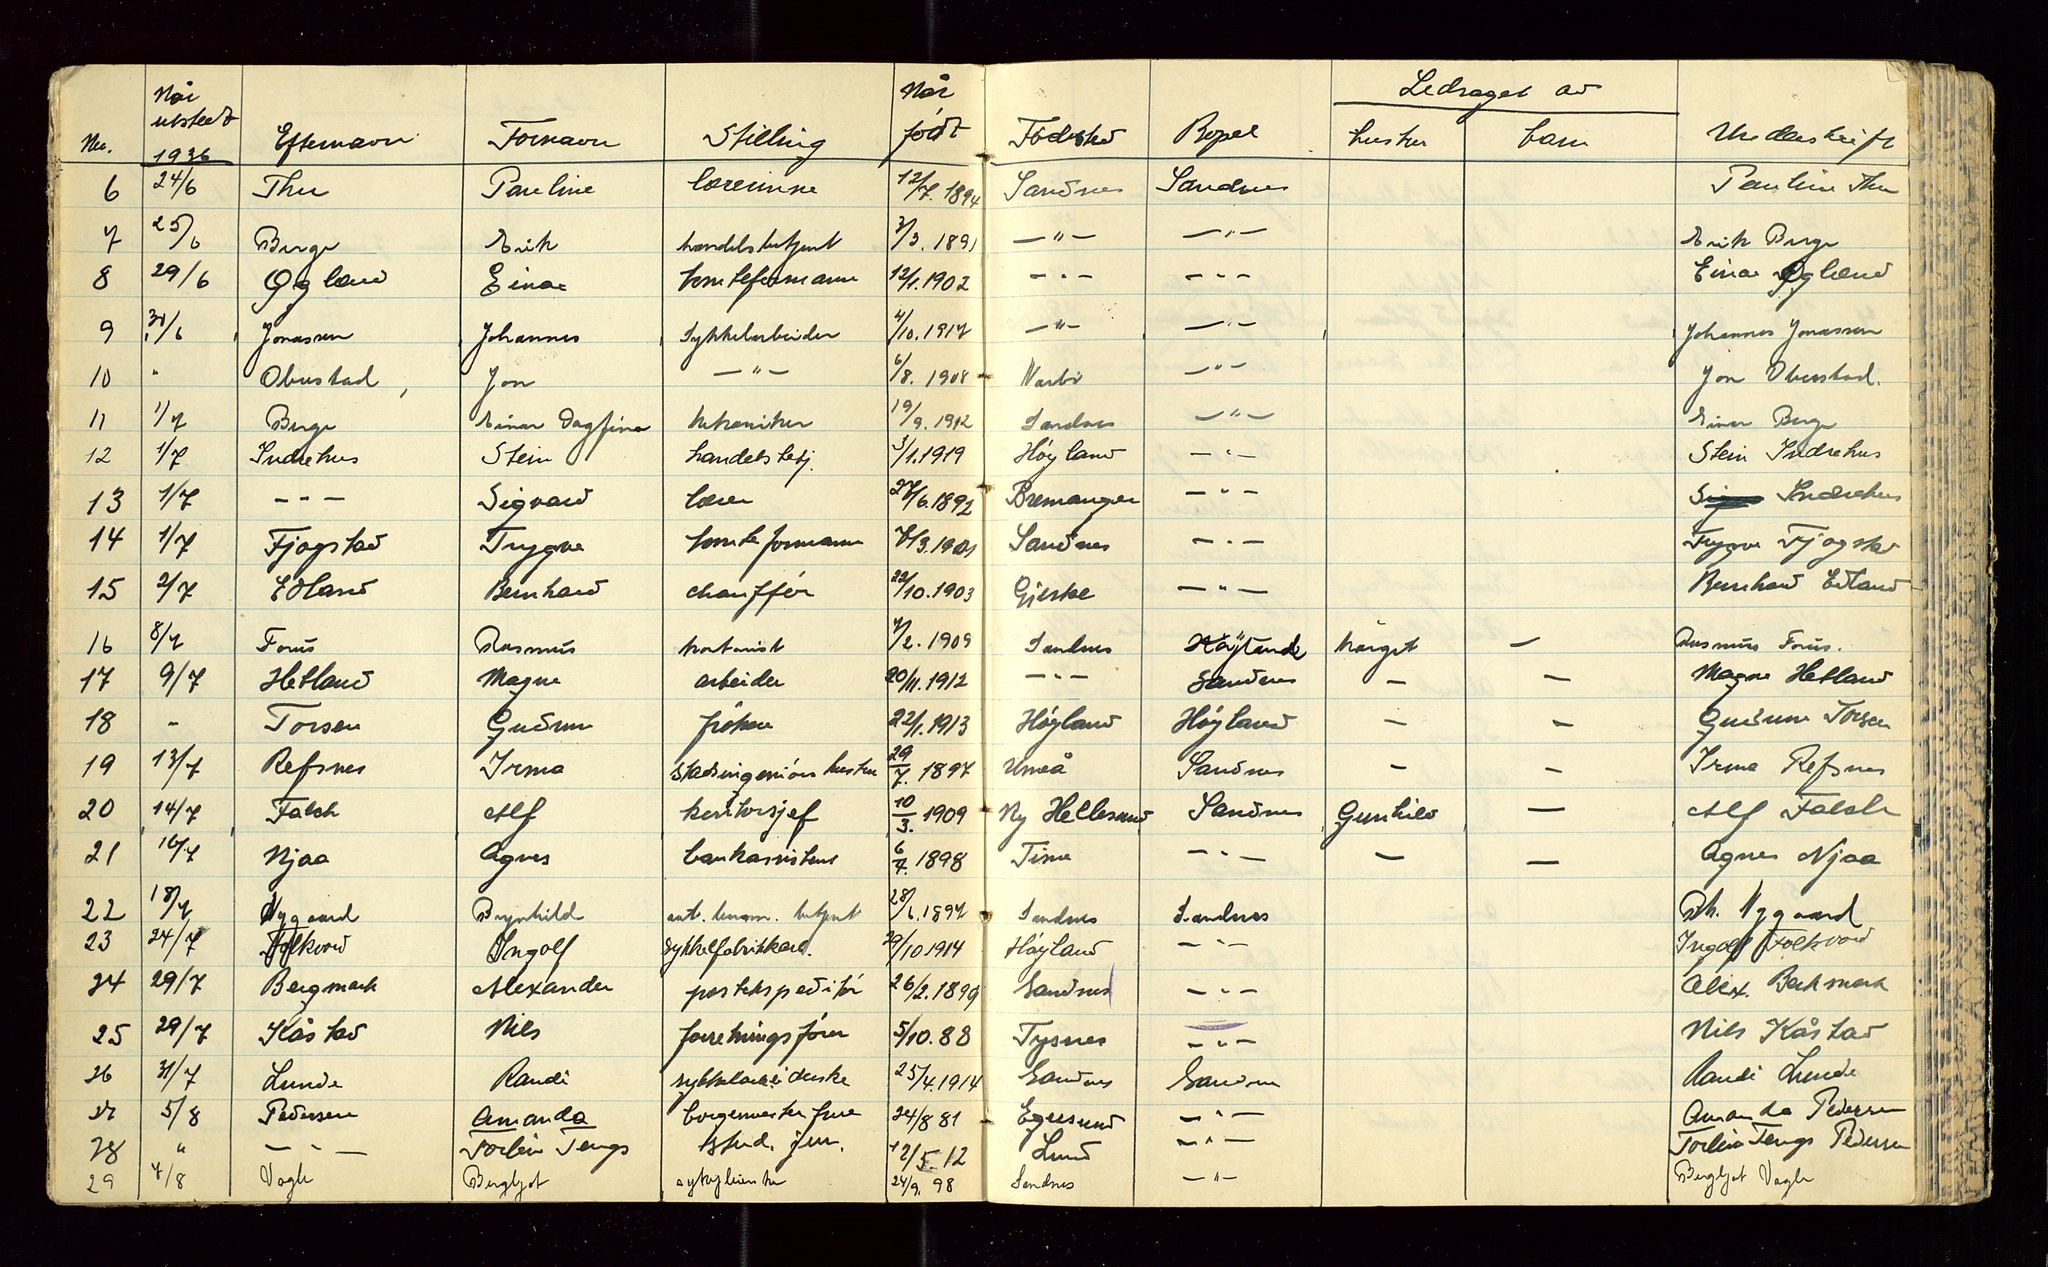 Ledsaget av
Nr. Når utstedt 1936 Efternavn Fornavn Stilling Når født Fødested Bopel hustru barn Underskrift
6 24/6 Thu Pauline lærerinne 12/7. 1894 Sandnes Sandnes Pauline Thu
7 25/6 Berge Erik handelsbetjent 3. 1891 —"— —"— Erik Berge
8 29/6 Øglænd Einar tomteformann 12/1. 1902 —"— —"— Einar Øglænd
9 30/6 Jonassen Johannes Sykkelarbeider 4/10. 1917 —"— —"— Johannes Jonassen
10 " Obrestad, Jon —"— 6/8. 1908 Narbø —"— Jon Obrestad.
11 1/7 Berge Einar Dagfinn mekaniker 19/9. 1912 Sandnes —"— Einar Berge
12 1/7 Indrehus Stein handelsbetj. 3/1. 1919 Høyland —"— Stein Indrehus
13 1/7 —"— Sigvard lærer 27/6. 1892 Bremanger —"— Indrehus
14 1/7 Fjogstad Trygve tomteformann 7/3. 1901 Sandnes —"— Trygve Fjogstad
15 2/7 Edland Bernhard chauffør 22/10. 1903 Gjerske —"— Bernhard Edland
16 8/7 Forus Rasmus kontorist 7/2. 1909 Sandnes Høyland Margot — Rasmus Forus.
17 9/7 Hetland Magne arbeider 20/11. 1912 —"— Sandnes — — Magne Hetland
18 " Torsen Gudrun frøken 22/1. 1913 Høyland Høyland — — Gudrun Torsen
19 13/7 Refsnes Irma stadsingeniørs hustru 29/7. 1897 Umeå Sandnes — — Irma Refsnes
20 14/7 Falch Alf kontorsjef 10/3. 1909 Ny Hellesund Sandnes Gunhild — Alf Falch
21 16/7 Njaa Agnes bankassistent 6/7. 1898 Time —"— — — Agnes Njaa
22 18/7 Nygaard Brynhild betjent 28/6. 1897 Sandnes Sandnes Nygaard
23 24/7 Folkvord Ingolf sykkelfabrikkarb. 29/10 1914 Høyland —"— Ingolf Folkvord
24 29/7 Bergmark Alexander postekspeditør 26/2. 1899 Sandnes —"— Alex. Berkmark
25 29/7 Kåstad Nils forretningsfører 5/10. 88 Tysnes —"— Nils Kåstad
26 31/7 Lunde Randi sykkelarbeiderske 25/4. 1914 Sandnes Sandnes Randi Lunde
27 5/8 Pedersen Amanda borgermester frue 24/8 81 Egersund —"— Amanda Pedersen
28 " —"— Torleiv Tengs Stud. jur. 12/5. 12 Lund —"— Torleiv Tengs Pedersen
29 7/8 Vagle Bergljot sykepleierske 24/9. 98 Sandnes —"— Bergljot Vagle